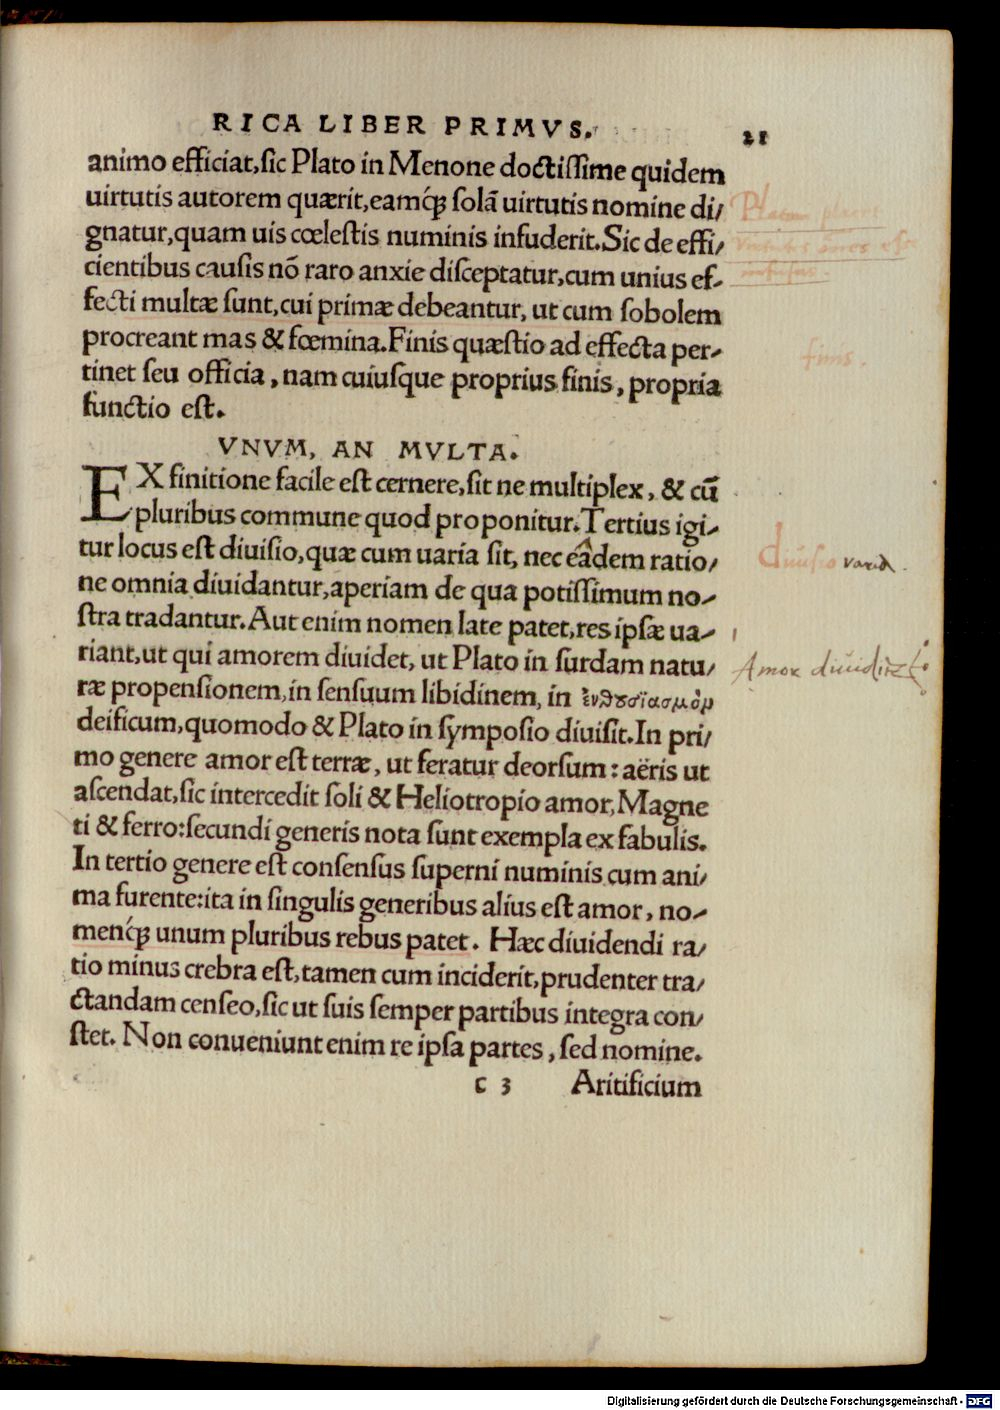 RICA LIBER PRIMVS. 21
animo efficiat,ſic Plato in Menone doctiſſime quidem
uirtutis autorem quærit,eamq́ꝫ ſolā uirtutis nomine di/
gnatur,quam uis cœleſtis numinis infuderit.Sic de effi/
cientibus cauſis nō raro anxie diſceptatur,cum unius ef-
fecti multæ ſunt,cui primæ debeantur, ut cum ſobolem
procreant mas & fœmina.Finis quæſtio ad effecta per-
tinet ſeu officia, nam cuiuſque proprius finis, propria
functio eſt.
Platoni placet
virtutes omnes esse
infusas.
finis.
VNVM, AN MVLTA.
EX finitione facile eſt cernere,ſit ne multiplex, & cū
pluribus commune quod proponitur.Tertius igi-
tur locus eſt diuiſio,quæ cum uaria ſit, nec eādem ratio/
ne omnia diuidantur,aperiam de qua potiſſimum no-
ſtra tradantur.Aut enim nomen late patet,res ipſæ ua-
riant,ut qui amorem diuidet, ut Plato in ſurdam natu/
ræ propenſionem,in ſenſuum libidinem, in ἐνθουσιασμὸν
deificum,quomodo & Plato in ſympoſio diuiſit.In pri/
mo genere amor eſt terræ, ut feratur deorſum: aëris ut
aſcendat,ſic intercedit ſoli & Heliotropio amor,Magne
ti & ferro:ſecundi generis nota ſunt exempla ex fabulis.
In tertio genere eſt conſenſus ſuperni numinis cum ani/
ma furente:ita in ſingulis generibus alius eſt amor, no-
menq́ꝫ unum pluribus rebus patet. Hæc diuidendi ra/
tio minus crebra eſt,tamen cum inciderit,prudenter tra/
ctandam cenſeo,ſic ut ſuis ſemper partibus integra con/
ſtet. Non conueniunt enim re ipſa partes, ſed nomine.
Diuisio varia.
Amor diuidit
c 3 Aritificium
Digitalisierung gefördert durch die Deutsche Forschungsgemeinschaft - DFG